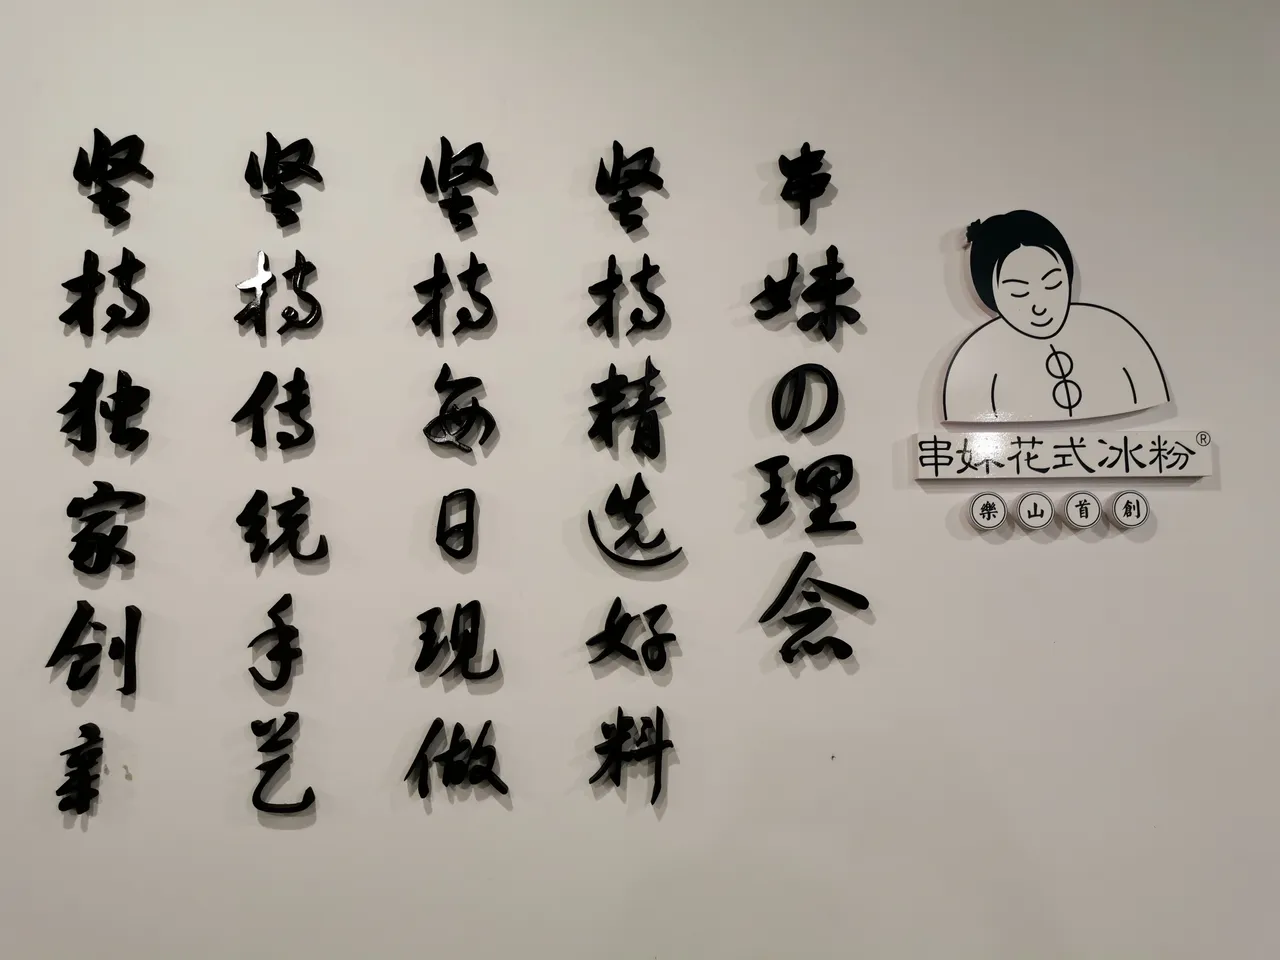 串妹花式冰粉®
樂山首創
串妹の理念
坚持精选好料
坚持每日现做
坚持传统手艺
坚持独家创亲